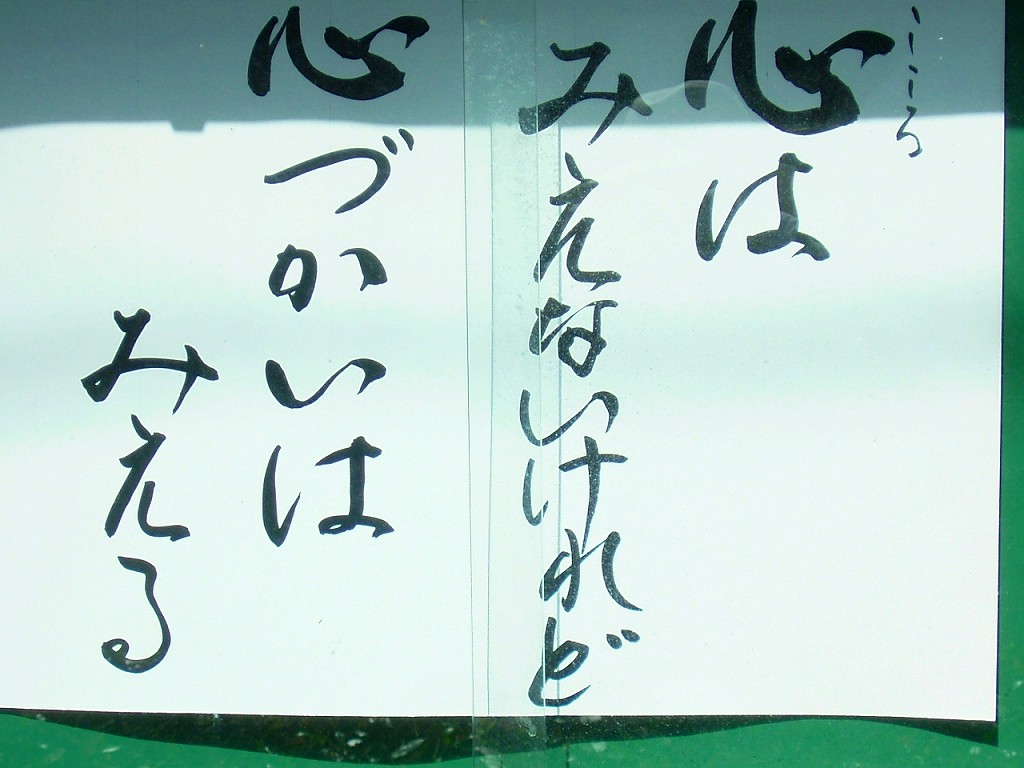 こころ
心は
みえないけれど
心づかいは
みえる